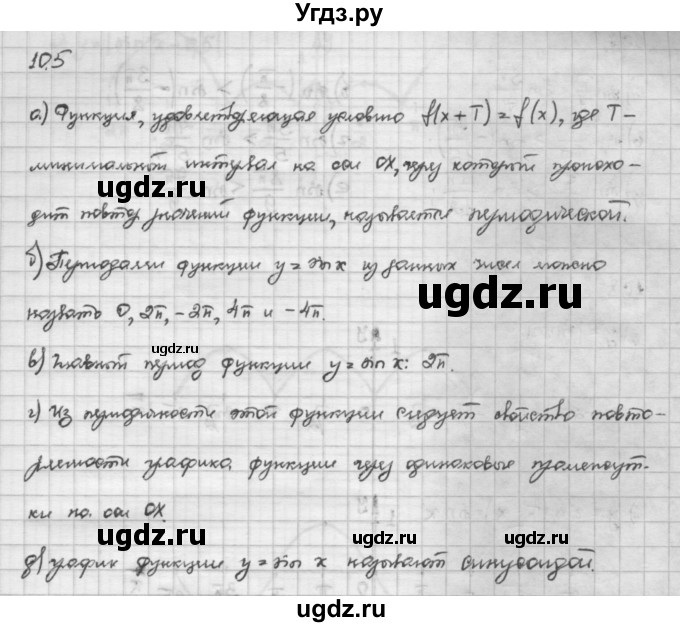 Угдз.ру
10.5
а) Функция, удовлетворяющая условию f(x+T)=f(x), где T –
минимальный интервал на оси OX, через который происхо-
дит повтор значений функции, называется периодической.
б) Периодами функции y = sin x из данных чисел можно
назвать 0, 2π, -2π, 4π и -4π.
в) Главный период функции y = sin x: 2π.
г) Из периодичности этой функции следует свойство повто-
ряемости графика функции через одинаковые промежут-
ки по оси OX.
д) График функции y = sin x называют синусоидой.
ugdz.ru
ugdz.ru
ugdz.ru
ugdz.ru
ugdz.ru
ugdz.ru
ugdz.ru